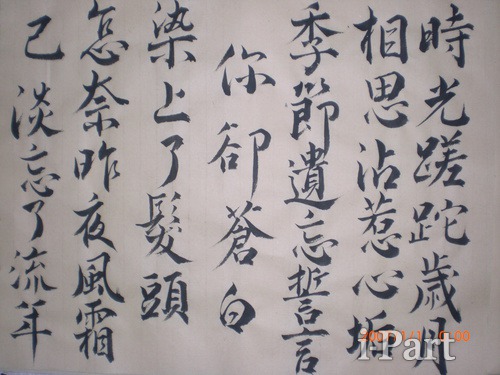 時光蹉跎歲月
相思沾惹心垢
季節遺忘誓言
你卻蒼白
染上了髮頭
怎奈昨夜風霜
已淡忘了流年
i-Part